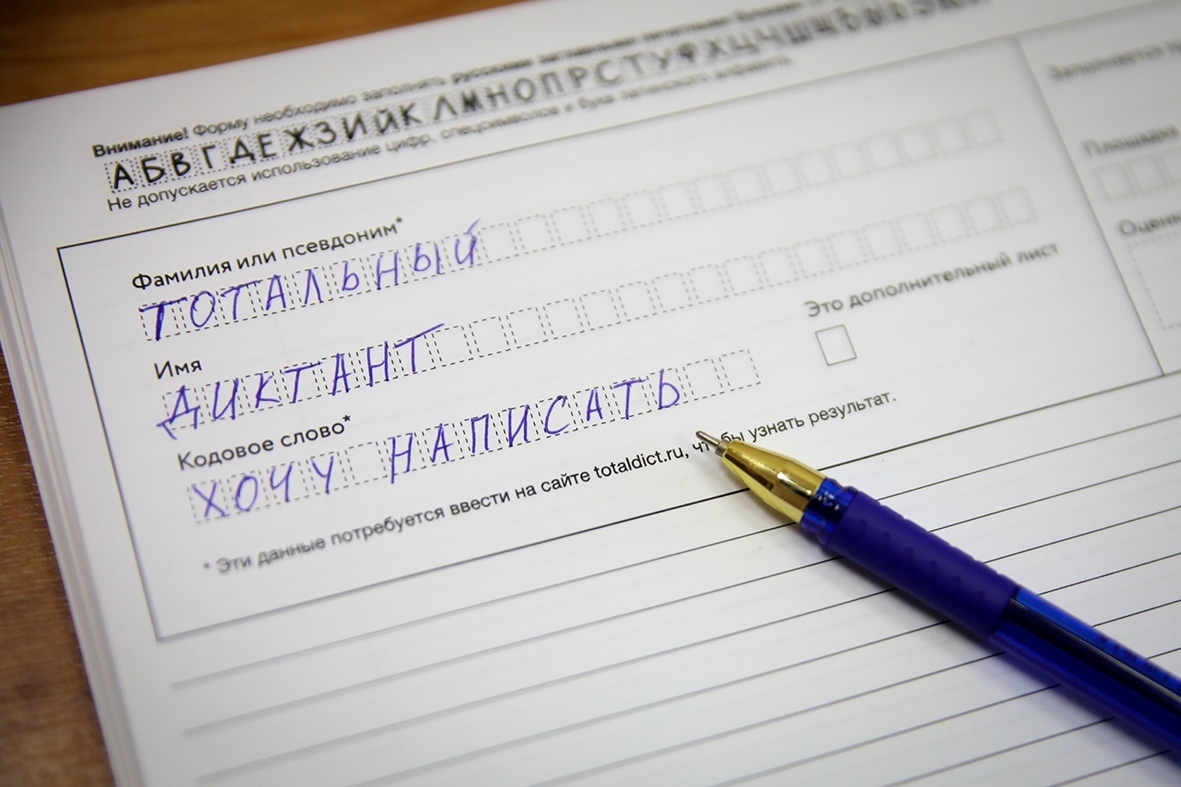 Внимание! Форму необходимо заполнять русскими заглавными печатными буквами
АБВГДЕЖЗИЙКЛМНОПРСТУФХЦЧШЩЪЫЬЭЮЯ
Не допускается использование цифр, спецсимволов и букв латинского алфавита.
Фамилия или псевдоним*
ТОТАЛЬНЫЙ
Имя
ДИКТАНТ
Кодовое слово*
ХОЧУ НАПИСАТЬ
Это дополнительный лист
* Эти данные потребуется ввести на сайте totaldict.ru, чтобы узнать результат.
Заполняется
Площадка
Оценка